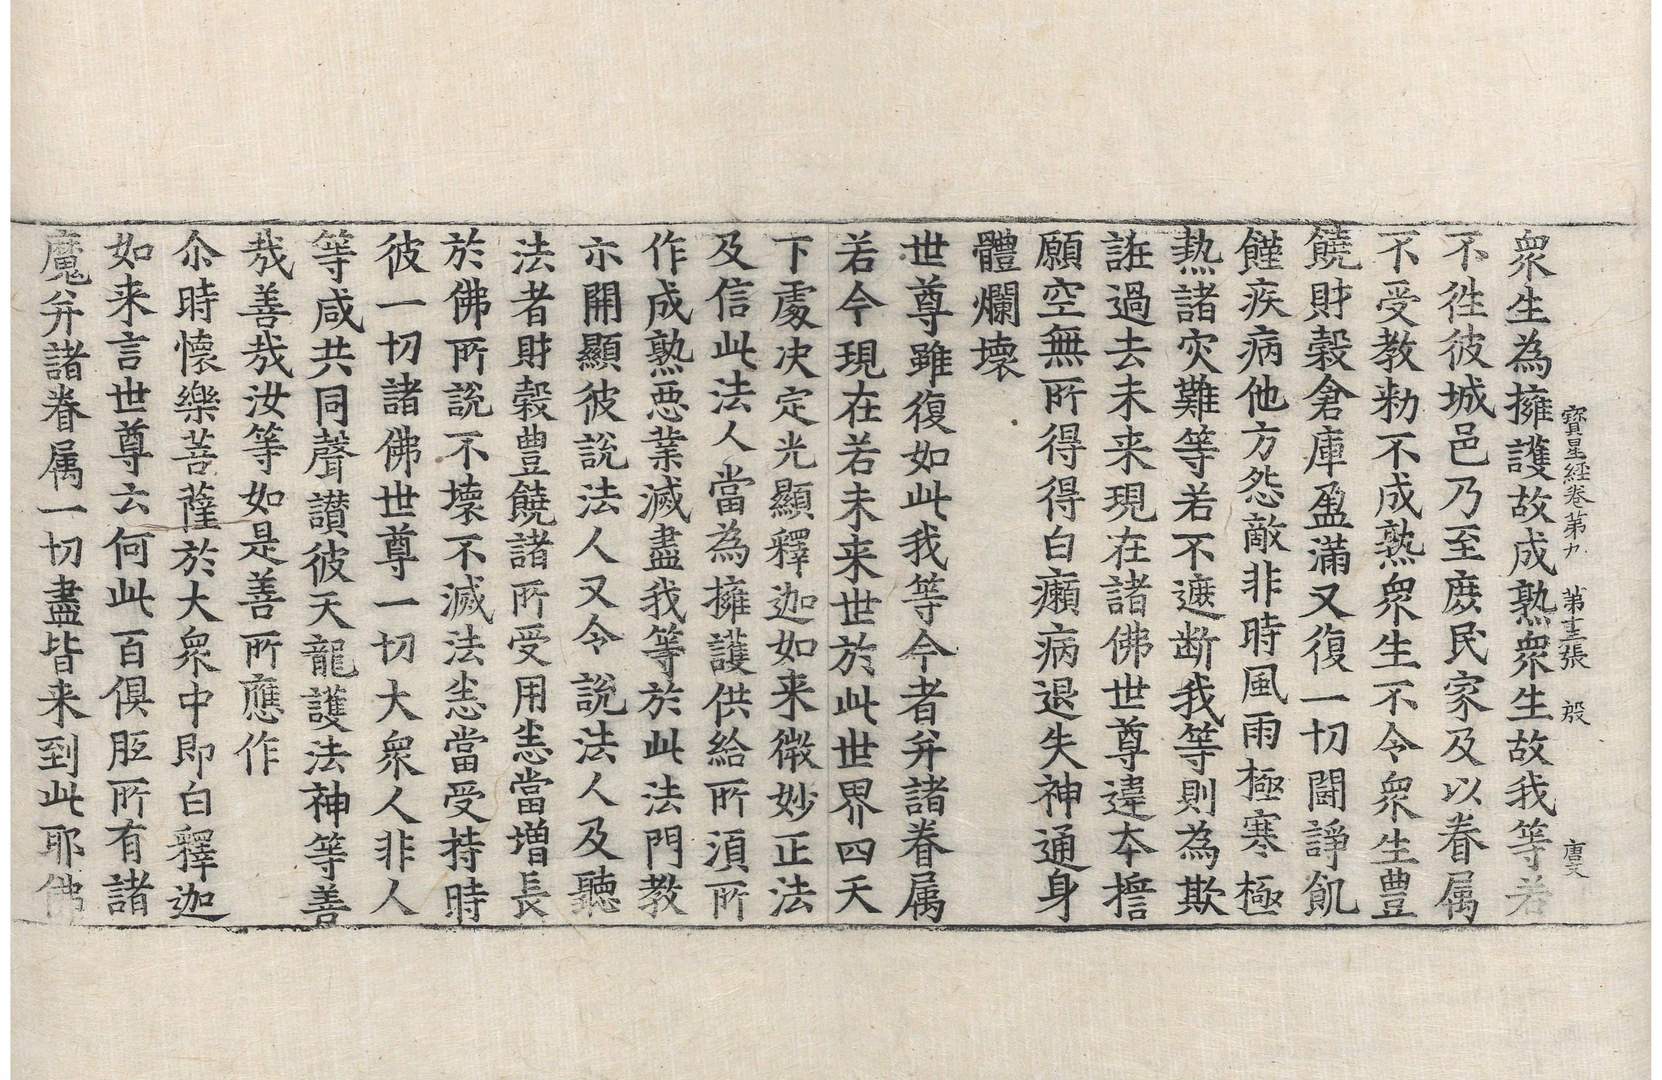 寳星經卷第九 第十三張 殷 唐文
衆生為擁護故成熟衆生故我等若
不徃彼城邑乃至庶民家及以眷属
不受教勑不成熟衆生不令衆生豊
饒財穀倉庫盈滿又復一切鬪諍飢
饉疾病他方怨敵非時風雨極寒極
熱諸灾難等若不遮断我等則為欺
誑過去未来現在諸佛世尊違夲擔
願空無所得得白癩病退失神通身
體爛壞
世尊雖復如此我等今者并諸眷属
若今現在若未来世於此世界四天
下處决定光顯釋迦如来微妙正法
及信此法人當為擁護供給所湏所
作成熟惡業滅盡我等於此法門教
亦開顯彼說法人又令說法人及聽
法者財穀豊饒諸所受用悉當增長
於佛所說不壞不滅法悉當受持時
彼一切諸佛世尊一切大衆人非人
等咸共同聲讃彼天龍護法神等善
哉善哉汝等如是善所應作
尒時懷樂菩薩於大衆中即白釋迦
如来言世尊云何此百俱胝所有諸
魔并諸眷属一切盡皆来到此耶佛